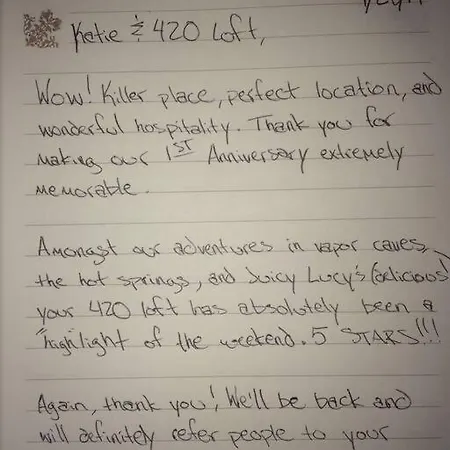 Katie & 420 Loft,
Wow! Killer place, perfect location, and
wonderful hospitality. Thank you for
making our 1ST Anniversary extremely
memorable.
Amongst our adventures in vapor caves,
the hot springs, and Juicy Lucy's (delicious)
your 420 loft has absolutely been a
"high"light of the weekend. 5 STARS!!!
Again, thank you! We'll be back and
will definitely refer people to your